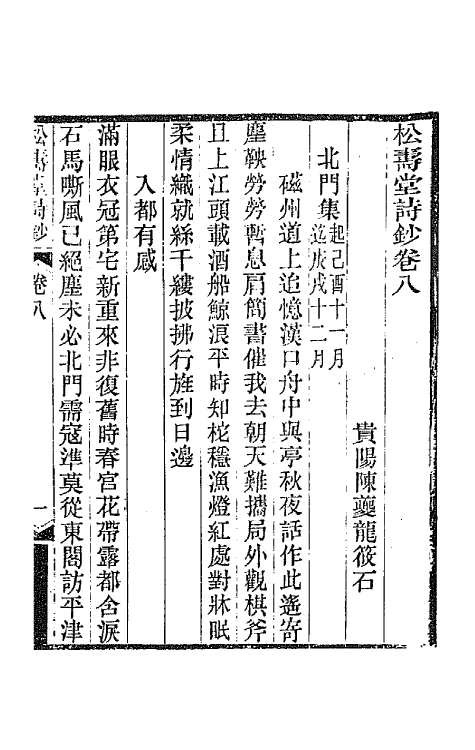 松壽堂詩鈔卷八
貴陽陳夔龍筱石
北門集起己酉十一月迄庚戌十二月
磁州道上追憶漢口舟中與亭秋夜話作此遙寄
塵鞅勞勞暫息肩簡書催我去朝天難攜局外觀棋斧
且上江頭載酒船鯨浪平時知柁穩漁燈紅處對牀眠
柔情織就絲千縷披拂行旌到日邊
入都有感
滿眼衣冠第宅新重來非復舊時春宮花帶露都含淚
石馬嘶風已絕塵未必北門需寇準莫從東閣訪平津
松壽堂詩鈔 卷八 一